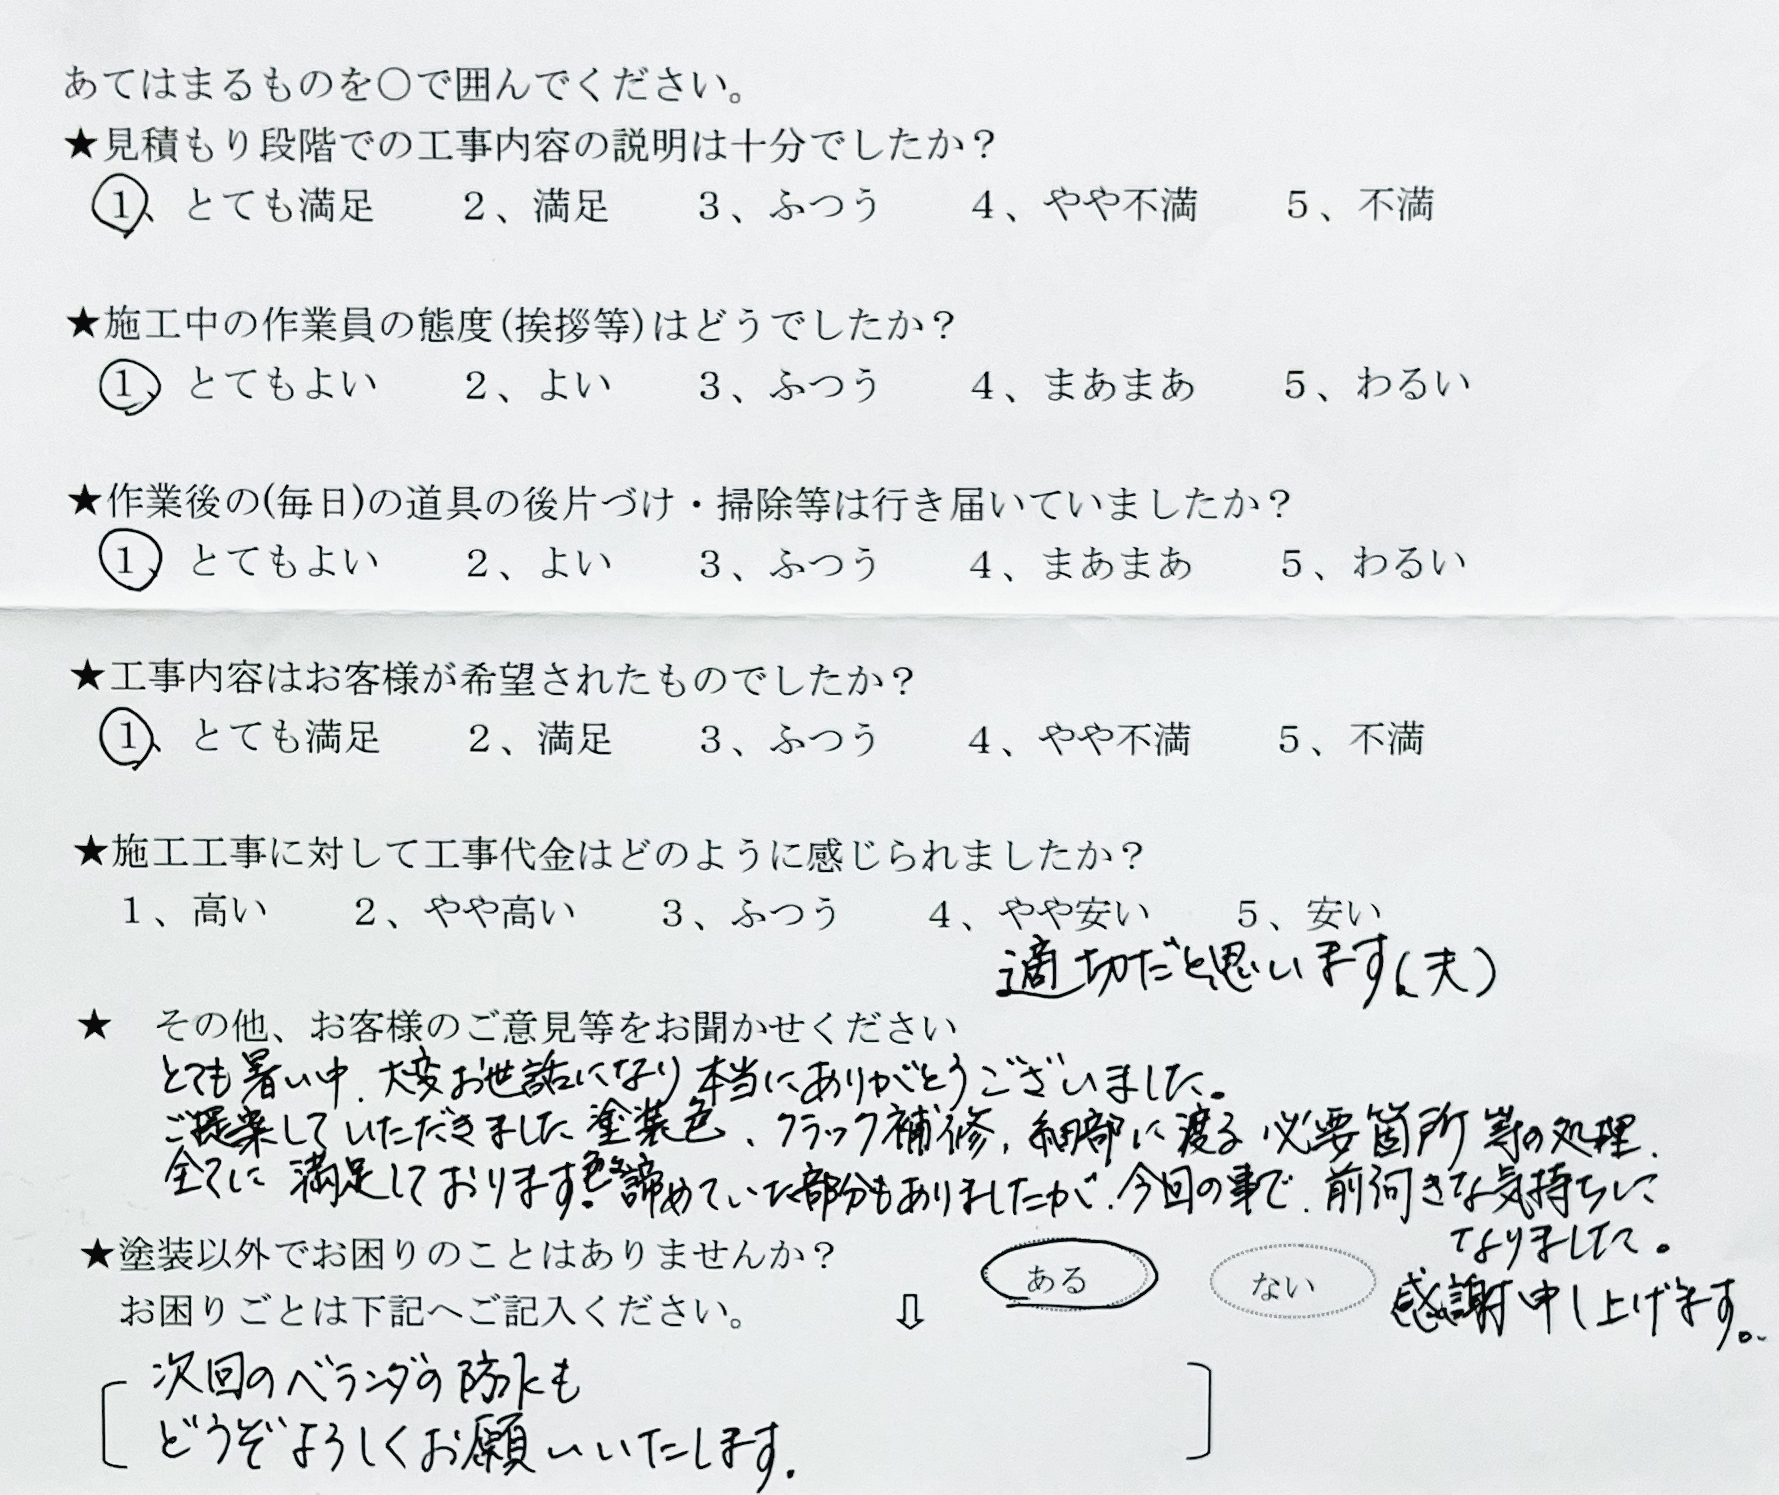 あてはまるものを〇で囲んでください。
★見積もり段階での工事内容の説明は十分でしたか？
1、とても満足　2、満足　3、ふつう　4、やや不満　5、不満
★施工中の作業員の態度(挨拶等)はどうでしたか？
1、とてもよい　2、よい　3、ふつう　4、まあまあ　5、わるい
★作業後の(毎日)の道具の後片づけ・掃除等は行き届いていましたか？
1、とてもよい　2、よい　3、ふつう　4、まあまあ　5、わるい
★工事内容はお客様が希望されたものでしたか？
1、とても満足　2、満足　3、ふつう　4、やや不満　5、不満
★施工工事に対して工事代金はどのように感じられましたか？
1、高い　2、やや高い　3、ふつう　4、やや安い　5、安い
適切だと思います(夫)
★　その他、お客様のご意見等をお聞かせください
とても暑い中、大変お世話になり本当にありがとうございました。
ご提案していただきました塗装色、クラック補修、細部に渡る必要箇所等の処理、
全てに満足しております。諦めていた部分もありましたが、今回の事で、前向きな気持ちに
なりました。
感謝申し上げます。
★塗装以外でお困りのことはありませんか？　ある　ない
お困りごとは下記へご記入ください。　⇩
次回のベランダの防水も
どうぞよろしくお願いいたします。